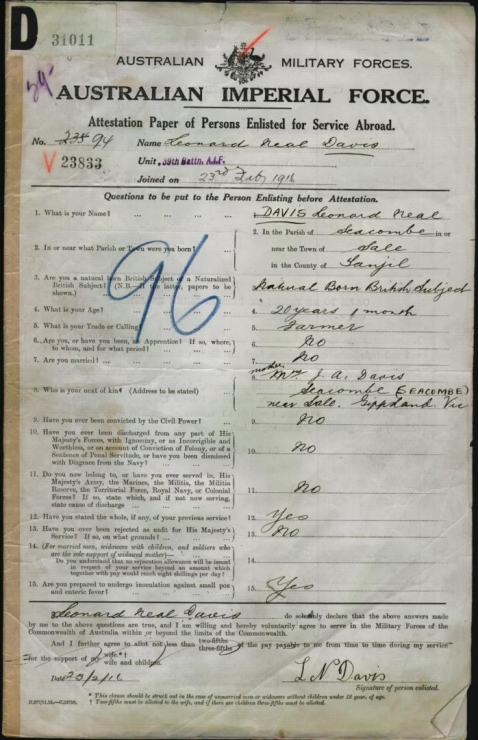 D 31011
AUSTRALIAN MILITARY FORCES.
AUSTRALIAN IMPERIAL FORCE.
Attestation Paper of Persons Enlisted for Service Abroad.
No. 94 Name Leonard Neal Davis
V 23833 Unit 39th Battn. A.I.F.
Joined on 23rd Feby 1916
Questions to be put to the Person Enlisting before Attestation.
1. What is your Name? ... ... ... 1. DAVIS Leonard Neal
2. In or near what Parish or Town were you born? ... 2. In the Parish of Seacombe in or
near the Town of Sale
in the County of Tanjil
3. Are you a natural born British Subject or a Naturalized
British Subject? (N.B.—If the latter, papers to be
shown.) Natural Born British Subject
4. What is your Age? ... ... ... 4. 20 years 1 month
5. What is your Trade or Calling? ... 5. Farmer
6. Are you, or have you been, an Apprentice? If so, where,
to whom, and for what period? ... 6. No
7. Are you married? ... ... ... 7. No
8. Who is your next of kin? (Address to be stated) ... 8. mother Mrs J. A. Davis
Seacombe (SEACOMBE)
near Sale. Gippsland Vic
9. Have you ever been convicted by the Civil Power? ... 9. No
10. Have you ever been discharged from any part of His
Majesty's Forces, with Ignominy, or as Incorrigible and
Worthless, or on account of Conviction of Felony, or of a
Sentence of Penal Servitude, or have you been dismissed
with Disgrace from the Navy? ... 10. No
11. Do you now belong to, or have you ever served in, His
Majesty's Army, the Marines, the Militia, the Militia
Reserve, the Territorial Force, Royal Navy, or Colonial
Forces? If so, state which, and if not now serving,
state cause of discharge ... 11. No
12. Have you stated the whole, if any, of your previous service? 12. Yes
13. Have you ever been rejected as unfit for His Majesty's
Service? If so, on what grounds? ... 13. No
14. (For married men, widowers with children, and soldiers who
are the sole support of widowed mother)—
Do you understand that no separation allowance will be issued
in respect of your service beyond an amount which
together with pay would reach eight shillings per day? 14.
15. Are you prepared to undergo inoculation against small pox
and enteric fever? 15. Yes
96
I, Leonard Neal Davis do solemnly declare that the above answers made
by me to the above questions are true, and I am willing and hereby voluntarily agree to serve in the Military Forces of the
Commonwealth of Australia within or beyond the limits of the Commonwealth.
And I further agree to allot not less than two-fifths three-fifths of the pay payable to me from time to time during my service
for the support of my wife* wife and children.
Date 23/2/16 L N Davis
Signature of person enlisted.
* This clause should be struck out in the case of unmarried men or widowers without children under 18 years of age.
† Two-fifths must be allotted to the wife, and if there are children three-fifths must be allotted.